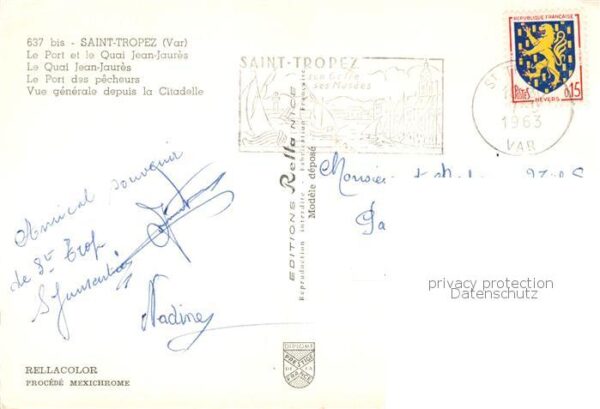 637 bis - SAINT-TROPEZ (Var)
Le Port et le Quai Jean-Jaurès
Le Quai Jean-Jaurès
Le Port des pêcheurs
Vue générale depuis la Citadelle
SAINT-TROPEZ
son Golfe
ses Musées
REPUBLIQUE FRANÇAISE
POSTES
0,15
NEVERS
ST
1963
VAR
EDITIONS Rella NICE
Reproduction interdite - Fabrication Française
Modèle déposé
Monsieur
Amical souvenir
de St Trop
Nadine
privacy protection
Datenschutz
DIPLOME
PRESTIGE
DE LA
FRANCE
RELLACOLOR
PROCÉDÉ MEXICHROME